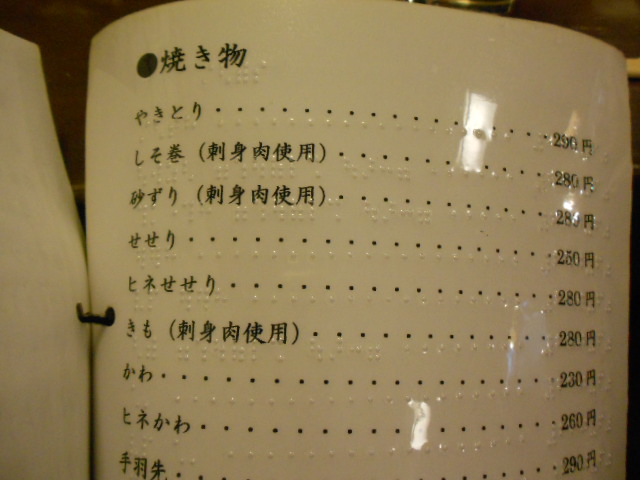 ●焼き物
やきとり・・・・・・・・・・・・・・・290円
しそ巻（刺身肉使用）・・・・・・・・・・280円
砂ずり（刺身肉使用）・・・・・・・・・・280円
せせり・・・・・・・・・・・・・・・・250円
ヒネせせり・・・・・・・・・・・・・・280円
きも（刺身肉使用）・・・・・・・・・・・280円
かわ・・・・・・・・・・・・・・・・・230円
ヒネかわ・・・・・・・・・・・・・・・260円
手羽先・・・・・・・・・・・・・・・・290円